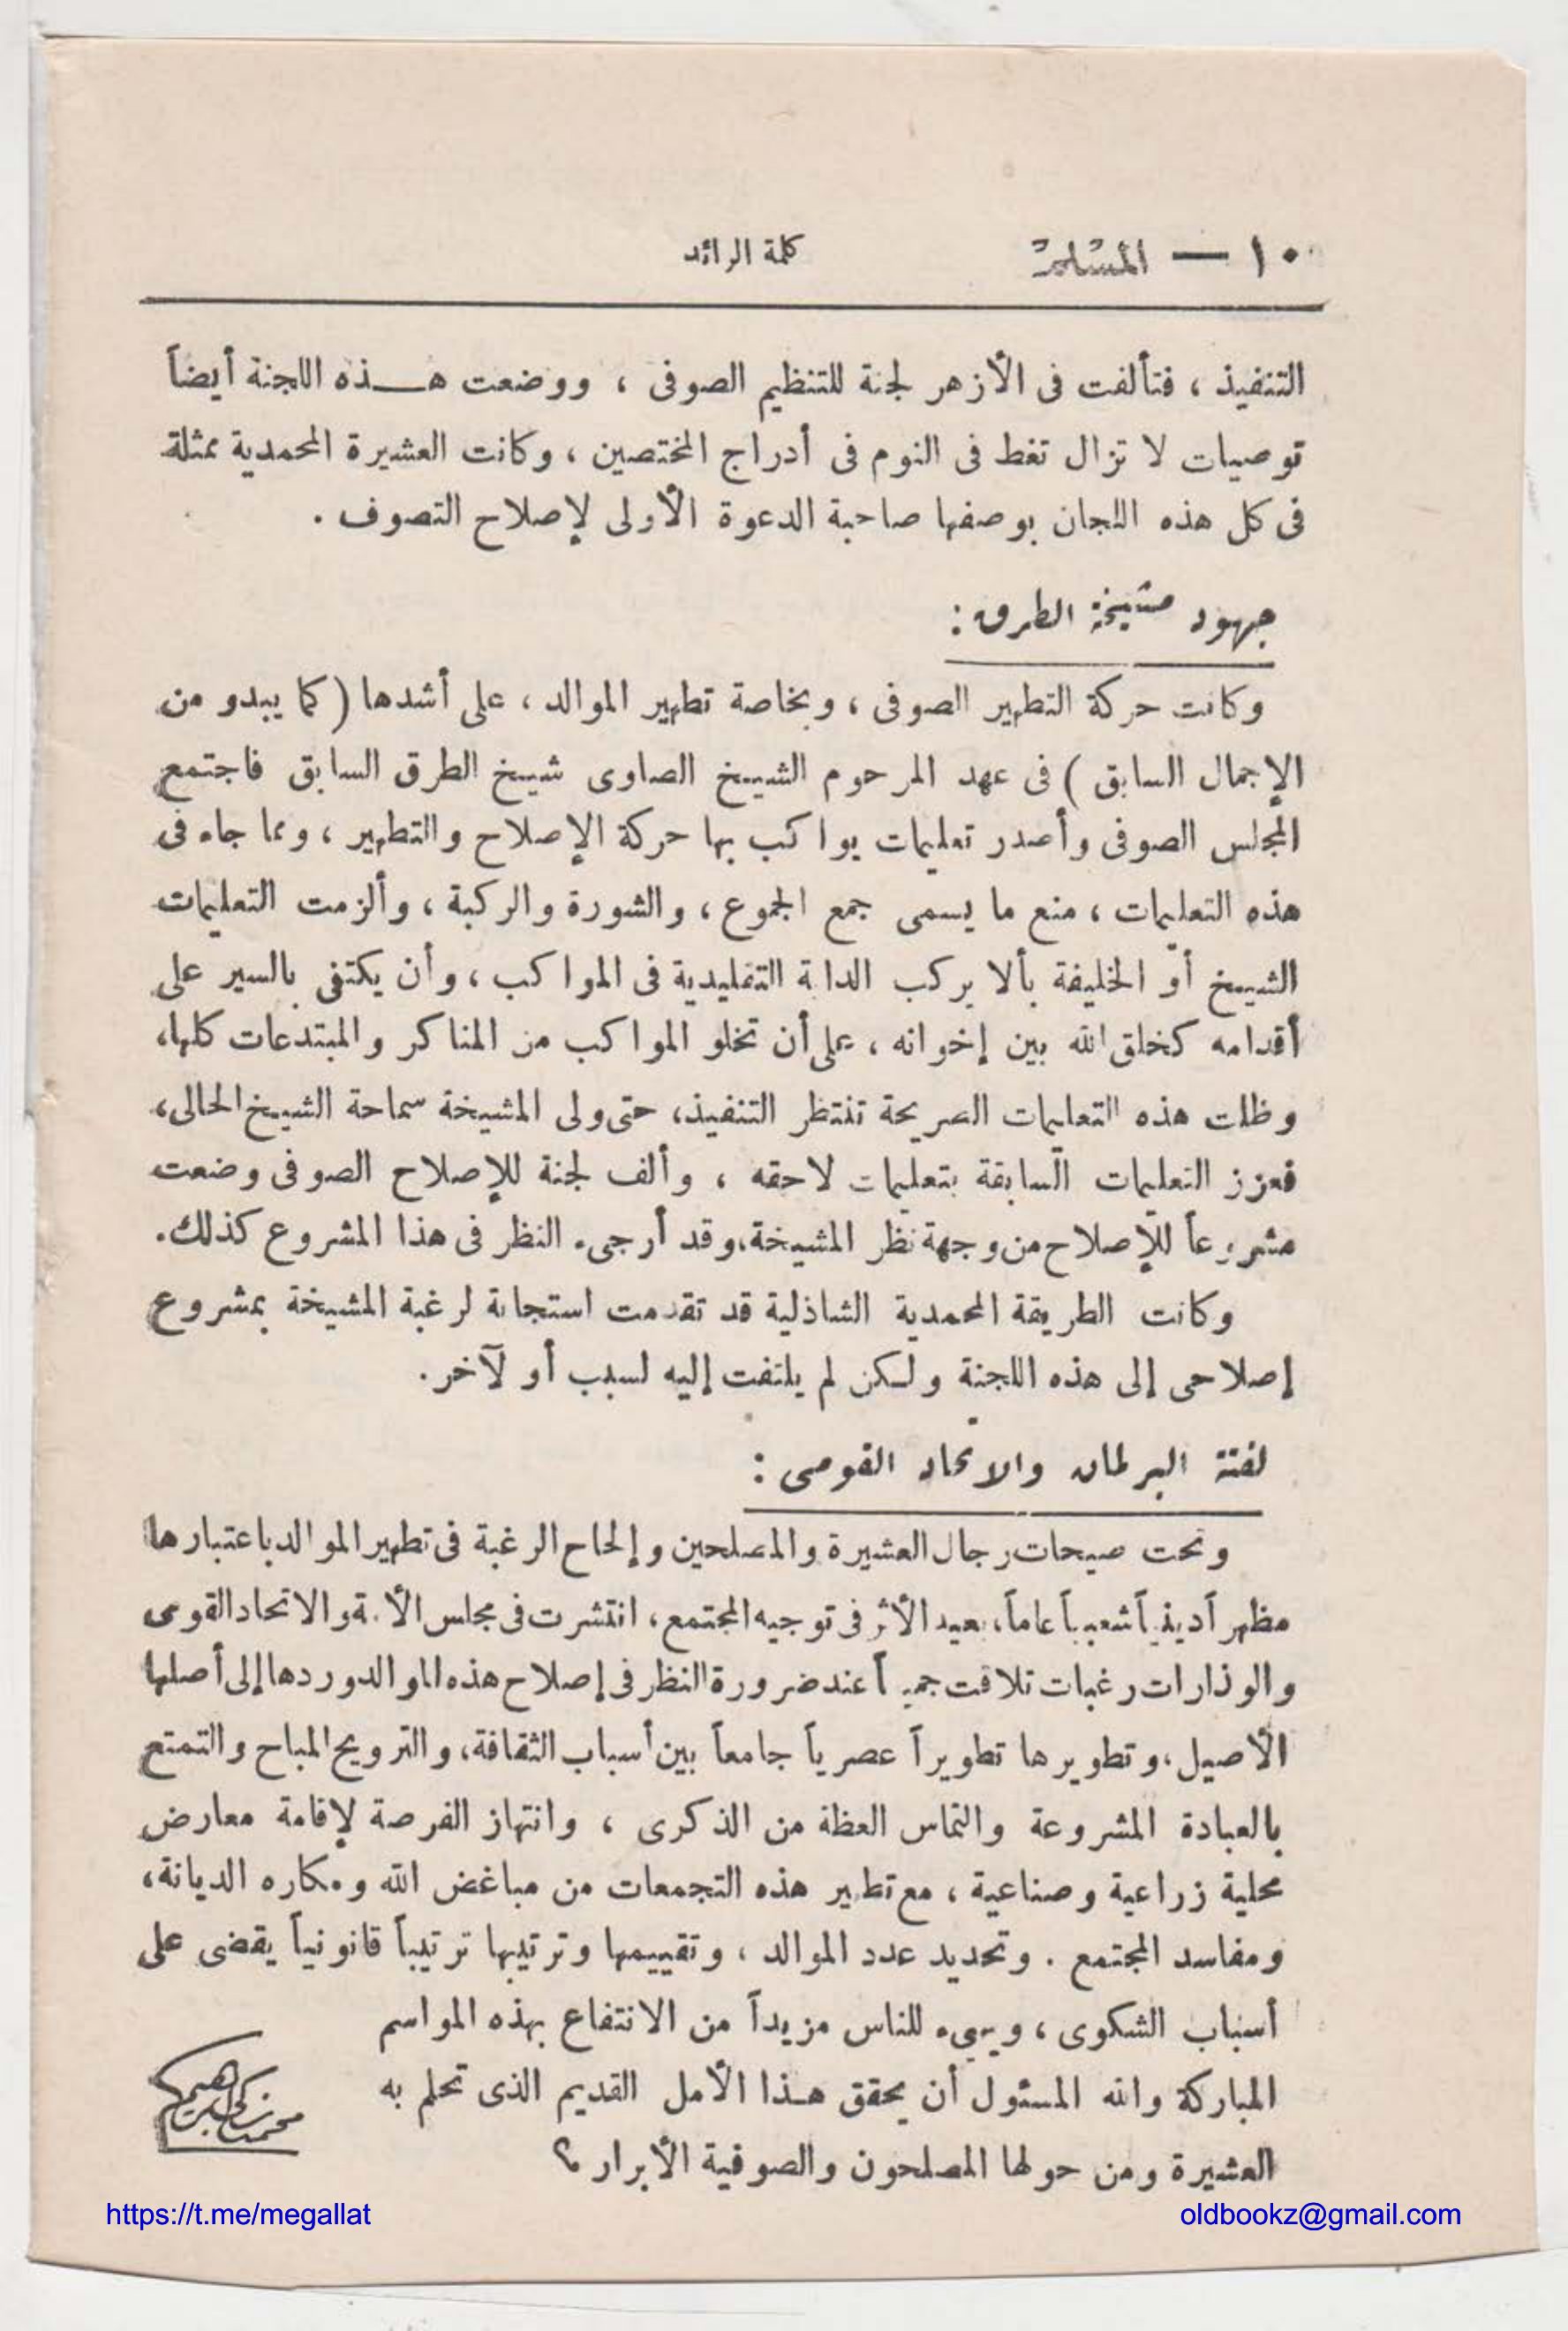 ١٠ — المسلم
كلمة الرائد
التنفيذ ، فتألفت فى الأزهر لجنة للتنظيم الصوفى ، ووضعت هـــذه اللجنة أيضاً
توصيات لا تزال تغط فى النوم فى أدراج المختصين ، وكانت العشيرة المحمدية ممثلة
فى كل هذه اللجان بوصفها صاحبة الدعوة الأولى لإصلاح التصوف .
جهود مشيخة الطرق :
وكانت حركة التطهير الصوفى ، وبخاصة تطهير الموالد ، على أشدها ( كما يبدو من
الإجمال السابق ) فى عهد المرحوم الشيخ الصاوى شيخ الطرق السابق فاجتمع
المجلس الصوفى وأصدر تعليمات يواكب بها حركة الإصلاح والتطهير ، ومما جاء فى
هذه التعليمات ، منع ما يسمى جمع الجموع ، والشورة والركبة ، وألزمت التعليمات
الشيخ أو الخليفة بألا يركب الدابة التقليدية فى المواكب ، وأن يكتفى بالسير على
أقدامه كخلق الله بين إخوانه ، على أن تخلو المواكب من المناكر والمبتدعات كلها،
وظلت هذه التعليمات الصريحة تنتظر التنفيذ، حتى ولى المشيخة سماحة الشيخ الحالى،
فعزز التعليمات السابقة بتعليمات لاحقه ، وألف لجنة للإصلاح الصوفى وضعت
مشروعاً للإصلاح من وجهة نظر المشيخة،وقد أرجىء النظر فى هذا المشروع كذلك.
وكانت الطريقة المحمدية الشاذلية قد تقدمت استجابة لرغبة المشيخة بمشروع
إصلاحى إلى هذه اللجنة ولكن لم يلتفت إليه لسبب أو لآخر.
لفتة البرلمان والاتحاد القومى :
وتحت صيحات رجال العشيرة والمصلحين وإلحاح الرغبة فى تطهير الموالد باعتبارها
مظهراً دينياً شعبياً عاماً، بعيد الأثر فى توجيه المجتمع ، انتشرت فى مجلس الأمة والاتحاد القومى
والوزارات رغبات تلاقت جميعاً عند ضرورة النظر فى إصلاح هذه الموالد وردها إلى أصلها
الأصيل ، وتطويرها تطويراً عصرياً جامعاً بين أسباب الثقافة، والترويح المباح والتمتع
بالعبادة المشروعة والتماس العظة من الذكرى ، وانتهاز الفرصة لإقامة معارض
محلية زراعية وصناعية ، مع تطهير هذه التجمعات من مباغض الله ومكاره الديانة،
ومفاسد المجتمع . وتحديد عدد الموالد ، وتقييمها وترتيبها ترتيباً قانونياً يقضى على
أسباب الشكوى ، ويهىء للناس مزيداً من الانتفاع بهذه المواسم
المباركة والله المسئول أن يحقق هــذا الأمل القديم الذى تحلم به
العشيرة ومن حولها المصلحون والصوفية الأبرار ؟
محمد زكى إبراهيم
https://t.me/megallat
oldbookz@gmail.com